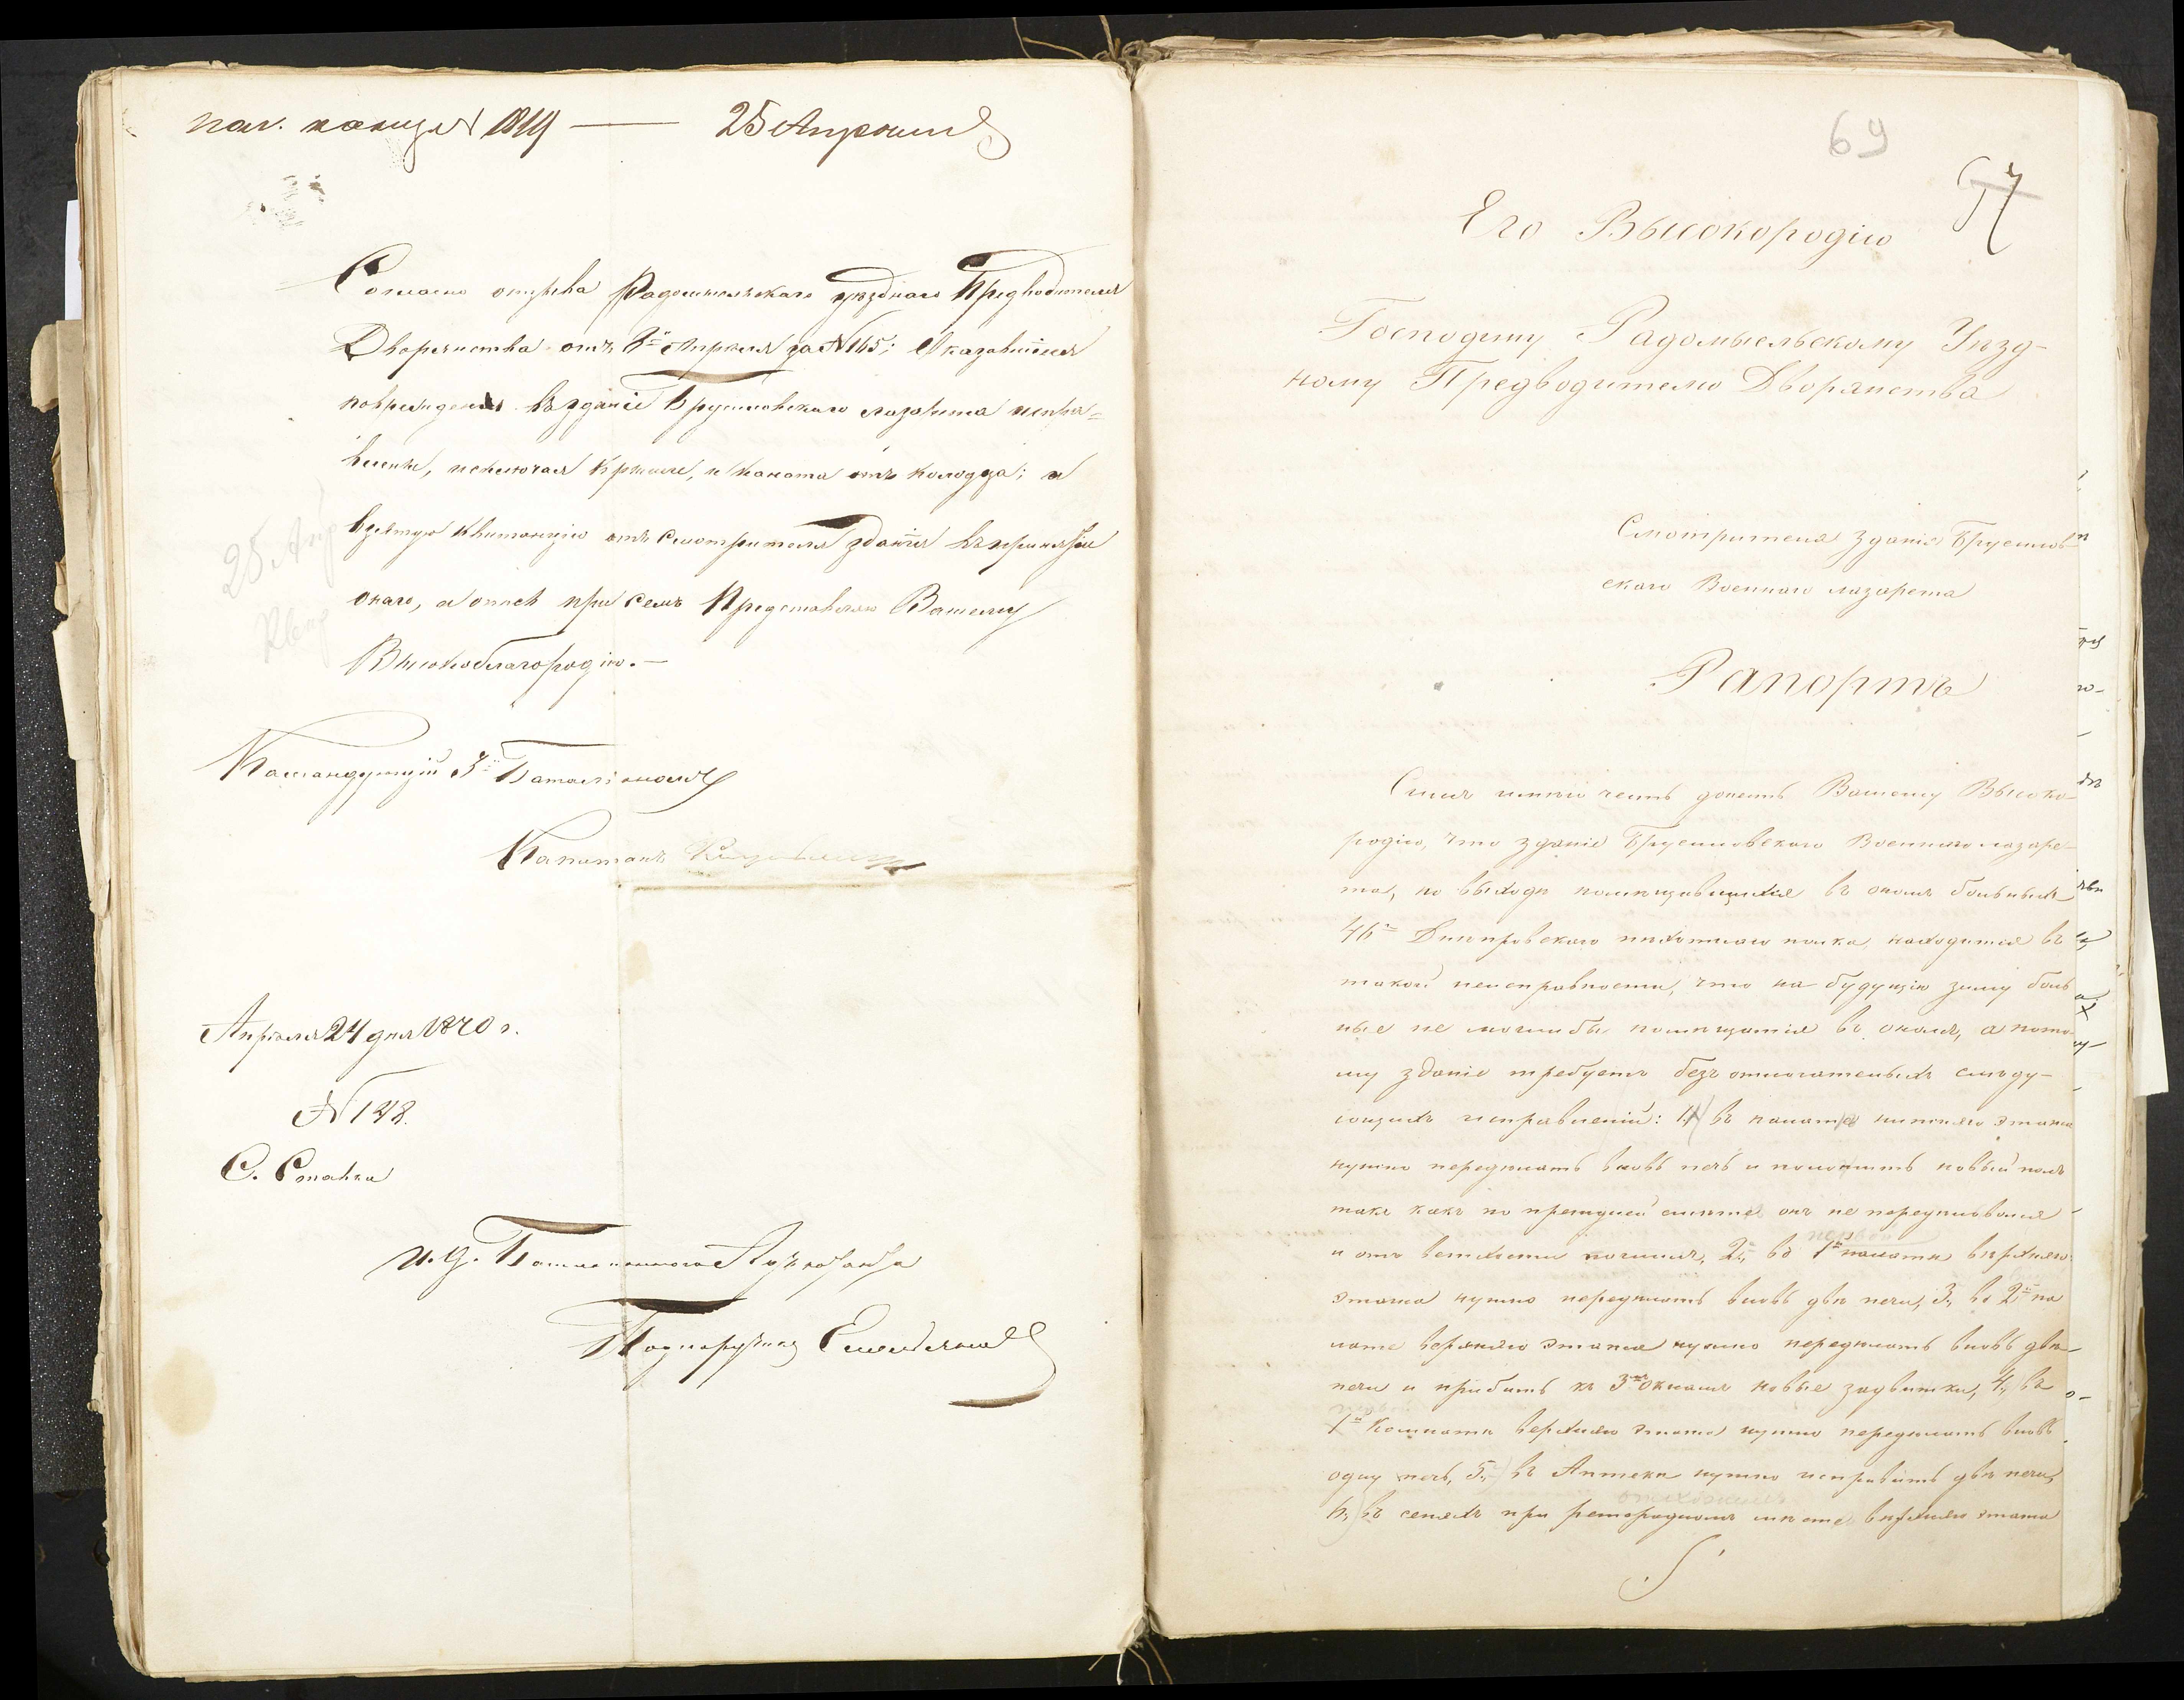 25 Апреля
Согласно отзыва Радомысльскаго уезднаго Предводителя
Дворянства отъ 8го Апреля за № 165; Оказавшіяся
поврежденія въ зданіе Брусиловскаго лазарета испра=
влены, исключая крыши, и каната отъ колодца; а
взятую квитанцію отъ смотрителя зданія въ принятіи
онаго, а опись при семъ представляю Вашему
Высокоблагородію.—
25 Апр
Командующій 3мъ Баталіономъ
Капитанъ
Апреля 24 дня 1870 г.
№ 148.
С. Ставки
И. д. Баталіоннаго Адъютанта
Подпоручикъ
69
67
Его Высокородію
Господину Радомысльскому Уѣзд-
ному Предводителю Дворянства
Смотрителя зданія Брусилов-
скаго Военнаго лазарета
Рапортъ
Симъ имѣю честь донесть Вашему Высоко-
родію, что зданіе Брусиловскаго Военнаго лазаре-
та, по выходѣ помѣщавшихся въ ономъ больныхъ
46го Днѣпровскаго пѣхотнаго полка, находится въ
такой неисправности, что на будущію зиму боль
ные не могли бы помѣщатся въ ономъ, а пото-
му зданіе требуетъ безъ отлогательныхъ слѣду-
ющихъ исправленій: 1) въ палате нижняго этажа
нужно передѣлать вновь печь и положить новый полъ
такъ какъ по прежней смѣте онъ не передѣлывался
и отъ ветхости погнилъ, 2, въ 1й палатѣ верхняго
этажа нужно передѣлать вновь двѣ печи, 3, во 2й па
лате верхняго этажа нужно передѣлать вновь двѣ
печи и прибить къ 3мъ окнамъ новые задвижки, 4, въ
1й Комнатѣ верхняго этажа нужно передѣлать вновь
одну печь, 5,) въ Аптеки нужно исправить двѣ печи,
6,) въ сеняхъ при ретирадномъ мѣсте верхняго этажа